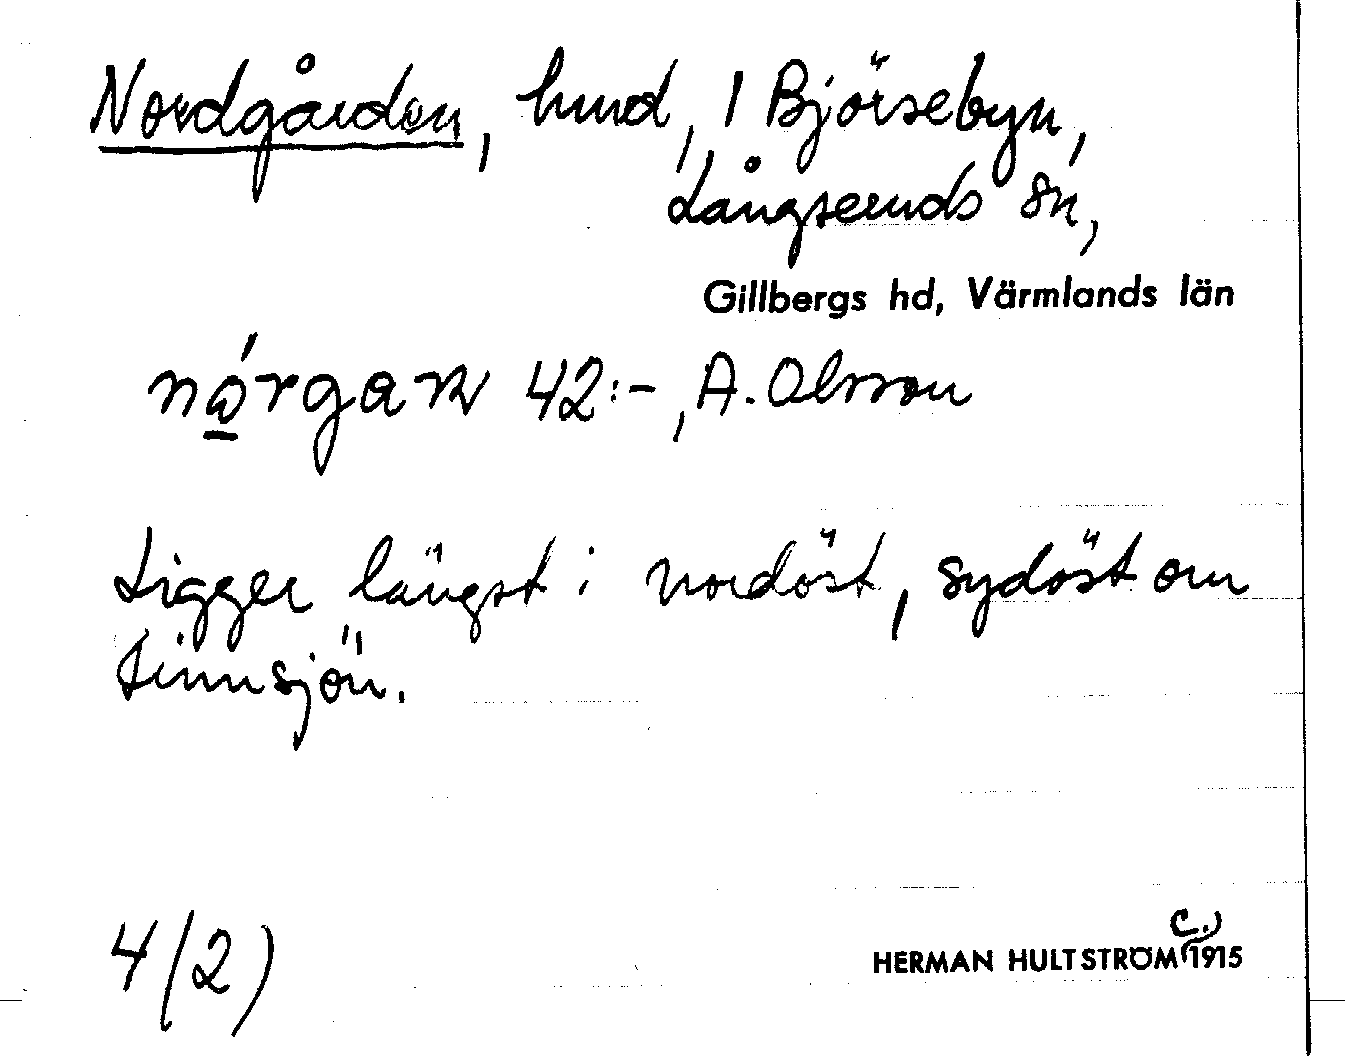 Nordgården, hmd, 1 Björsebyn,
Långseruds sn,
Gillbergs hd, Värmlands län
42:-, A. Olsson
Ligger längst i nordöst, sydöst om
Finnsjön.
4(2)
HERMAN HULTSTRÖM (c.) 1915